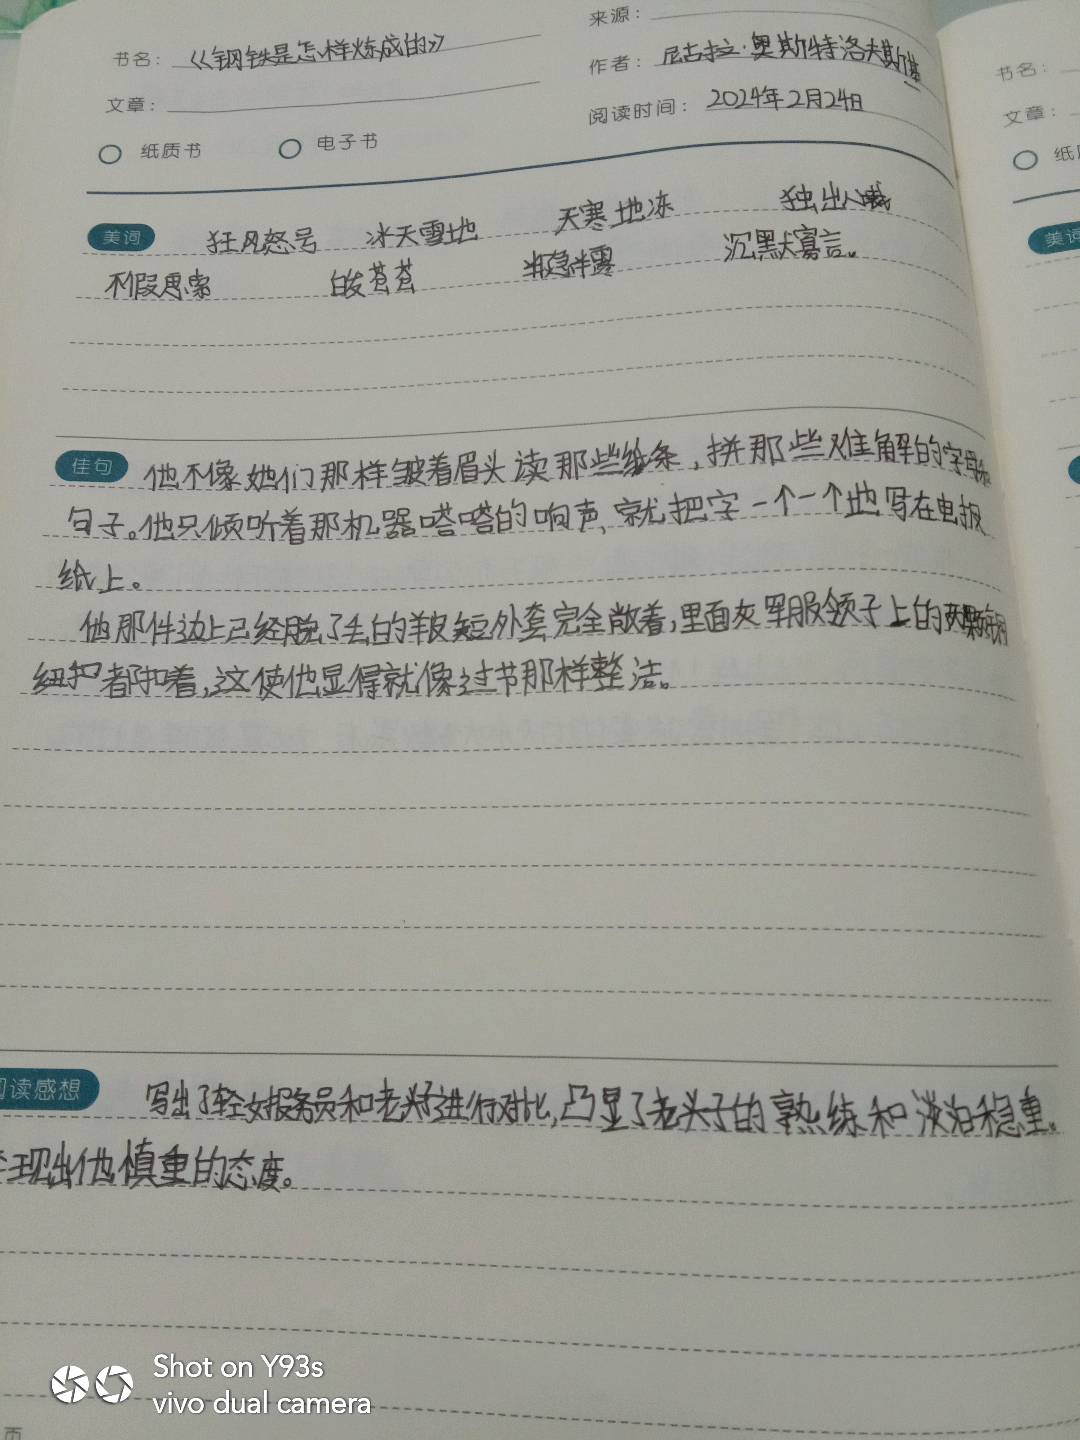 来源：
书名：《钢铁是怎样炼成的》
作者：尼古拉·奥斯特洛夫斯基
文章：
阅读时间：2024年2月24日
纸质书 电子书
美词 狂风怒号 冰天雪地 天寒地冻 独出心裁
不假思索 白发苍苍 半隐半露 沉默寡言。
佳句 他不像她们那样皱着眉头读那些纸条，拼那些难解的字母和
句子。他只倾听着那机器嗒嗒的响声，就把字一个一个地写在电报
纸上。
他那件边上已经脱了毛的羊皮短外套完全敞着，里面灰军服领子上的两颗
纽扣都扣着，这使他显得就像过节那样整洁。
阅读感想 写出了年轻女报务员和老头子进行对比，凸显了老头子的熟练和淡泊稳重。
现出他慎重的态度。
书名：
文章：
纸
美词
页
Shot on Y93s
vivo dual camera